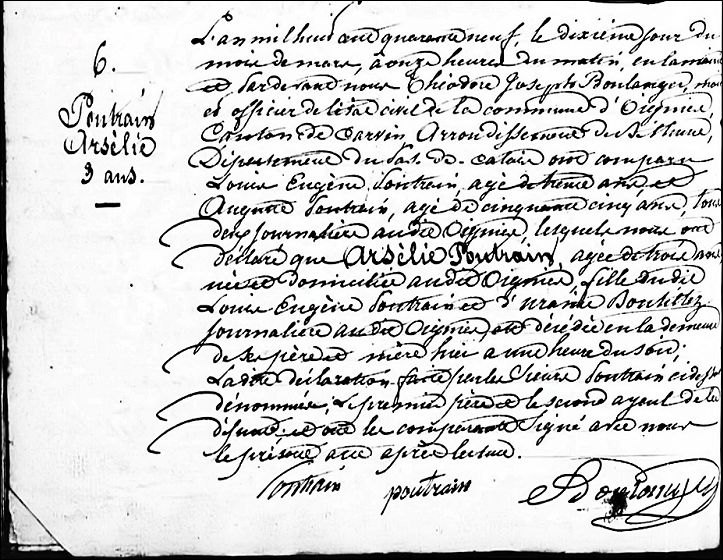 6.
Poutrain
Arsélie
3 ans.
L'an mil huit cent quarante neuf, le dixième jour du
mois de mars, à onze heures du matin, en la mairie
et par devant nous Théodore Joseph Boulanger, maire
et officier de l'état civil de la commune d'Oignies,
Canton de Carvin Arrondissement de Béthune,
Département du Pas-de-Calais ont comparu
Louis Eugène Poutrain, agé de trente ans et
Auguste Poutrain, agé de cinquante cinq ans, tous
deux journaliers audit Oignies, lesquels nous ont
déclaré que Arsélie Poutrain, agée de trois ans
née et domiciliée audit Oignies, fille dudit
Louis Eugène Poutrain et d'Uranie Boutillez
journalière audit Oignies, est décédée en la demeure
de ses père et mère hier a une heure du soir;
La dite déclaration faite par les sieurs Poutrain ci dessus
dénommés; le premier père et le second ayeul de la
défunte et ont les comparants signé avec nous
le présent acte après lecture.
Poutrain poutrain